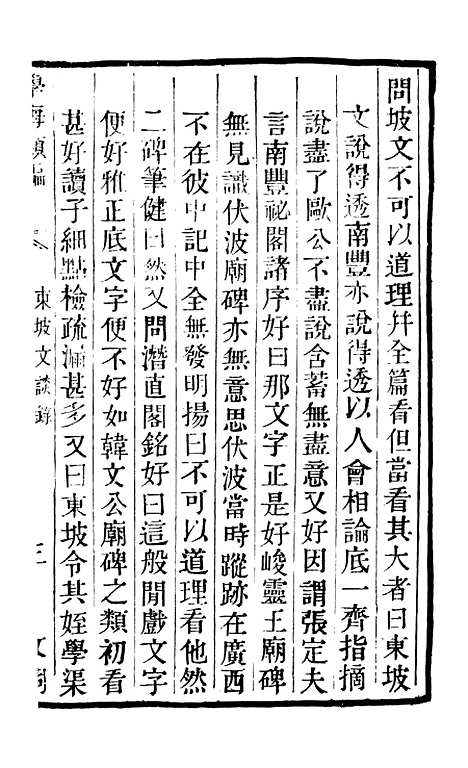 問坡文不可以道理幷全篇看但當看其大者曰東坡
文說得透南豐亦說得透以人會相論底一齊指摘
說盡了歐公不盡說含蓄無盡意又好因謂張定夫
言南豐祕閣諸序好曰那文字正是好峻靈王廟碑
無見識伏波廟碑亦無意思伏波當時蹤跡在廣西
不在彼中記中全無發明揚曰不可以道理看他然
二碑筆健曰然又問潛直閣銘好曰這般閒戲文字
便好雅正底文字便不好如韓文公廟碑之類初看
甚好讀子細點檢疏漏甚多又曰東坡令其姪學渠
學海類編
東坡文談錄
三